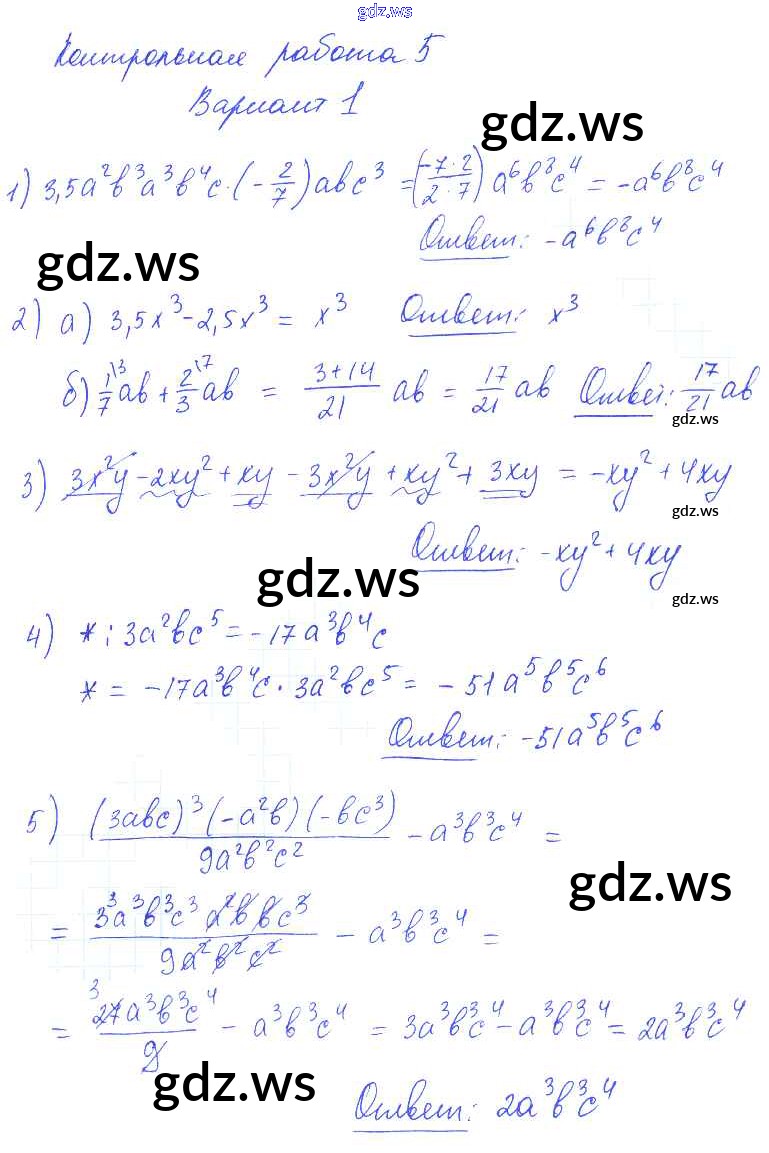 gdz.ws
Контрольная работа 5
Вариант 1
gdz.ws
1) 3,5a²b³a³b⁴c·(-2/7)abc³ = (-7·2/2·7)a⁶b⁸c⁴ = -a⁶b⁸c⁴
Ответ: -a⁶b⁸c⁴
gdz.ws
2) а) 3,5x³-2,5x³ = x³ Ответ: x³
б) 1\3/7 ab + 2\7/3 ab = 3+14/21 ab = 17/21 ab Ответ: 17/21 ab
gdz.ws
3) 3x²y - 2xy² + xy - 3x²y + xy² + 3xy = -xy² + 4xy
gdz.ws
Ответ: -xy² + 4xy
gdz.ws
gdz.ws
4) * : 3a²bc⁵ = -17a³b⁴c
* = -17a³b⁴c · 3a²bc⁵ = -51a⁵b⁵c⁶
Ответ: -51a⁵b⁵c⁶
5) (3abc)³(-a²b)(-bc³)/9a²b²c² - a³b³c⁴ =
gdz.ws
= 3³a³b³c³a²bbc³/9a²b²c² - a³b³c⁴ =
= 27 3 a³b³c⁴/9 - a³b³c⁴ = 3a³b³c⁴ - a³b³c⁴ = 2a³b³c⁴
gdz.ws
Ответ: 2a³b³c⁴